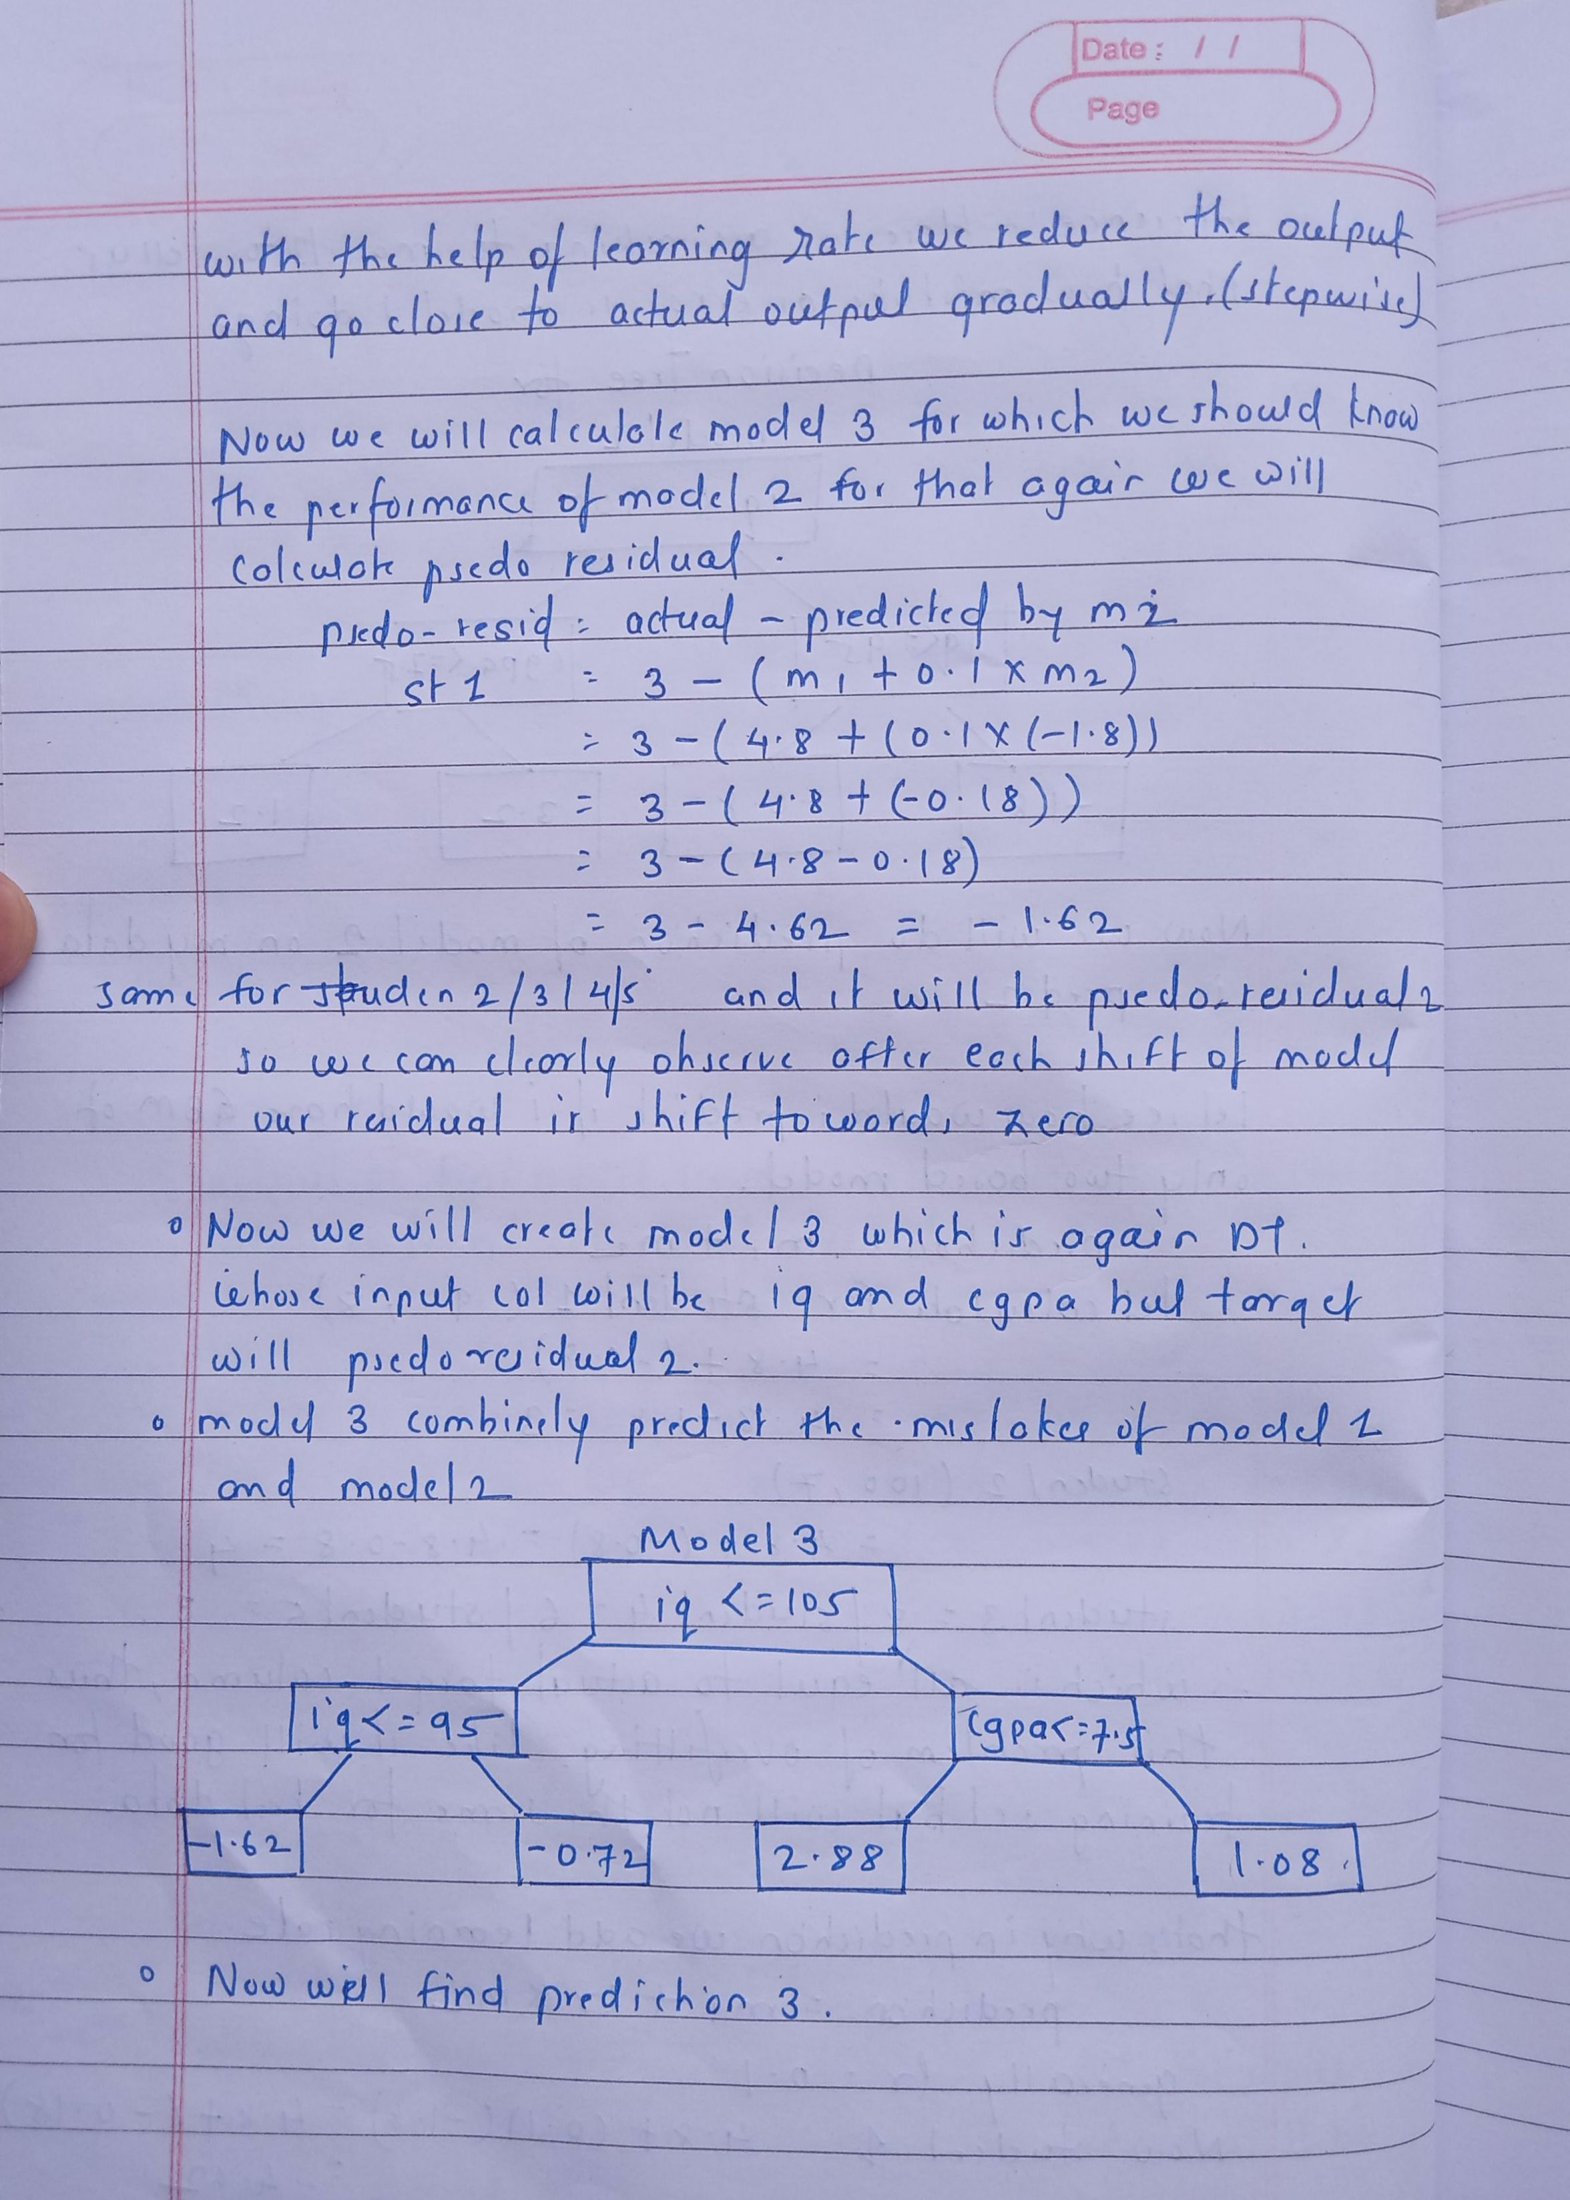 Date : / /
Page
with the help of learning rate we reduce the output
and go close to actual output gradually. (stepwise)
Now we will calculate model 3 for which we should know
the performance of model 2 for that again we will
calculate psedo residual.
psedo-resid = actual - predicted by m2
st 1 = 3 - (m1 + 0.1 x m2)
= 3 - (4.8 + (0.1 x (-1.8))
= 3 - (4.8 + (-0.18))
= 3 - (4.8 - 0.18)
= 3 - 4.62 = -1.62
same for studen 2/3/4/5 and it will be psedo-residual 2
so we can clearly observe after each shift of model
our residual is shift towards zero
o Now we will create model 3 which is again DT.
whose input col will be iq and cgpa but target
will psedo residual 2.
o model 3 combinely predict the mistakes of model 1
and model 2
Model 3
iq <= 105
iq <= 95 cgpa <= 7.5
-1.62 -0.72 2.88 1.08
o Now we'll find prediction 3.